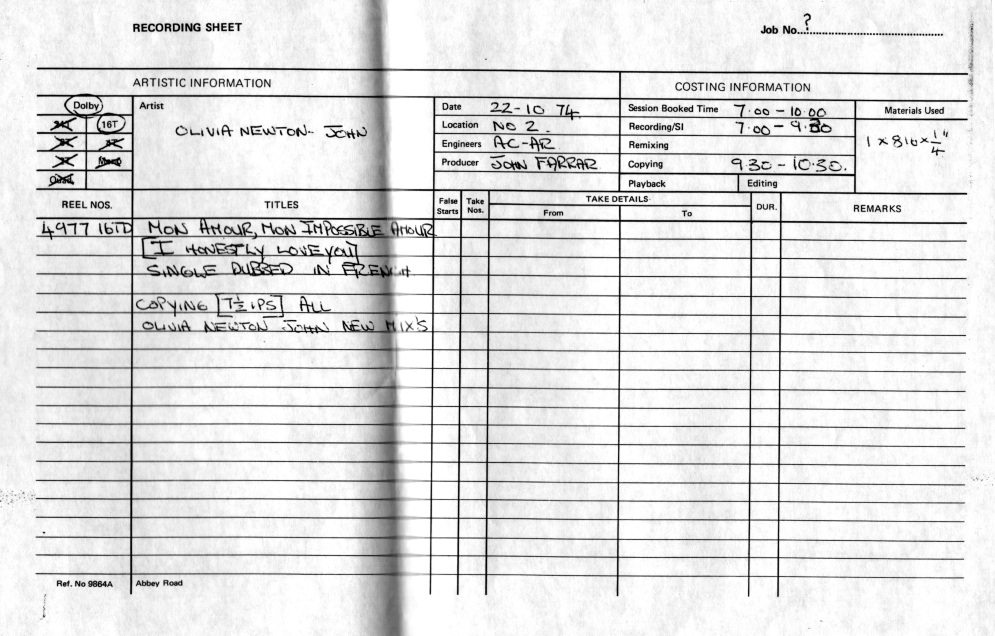 RECORDING SHEET
Job No...?
ARTISTIC INFORMATION
COSTING INFORMATION
Dolby
16T
Artist
OLIVIA NEWTON-JOHN
Date 22-10 74
Location No 2.
Engineers AC-AR
Producer JOHN FARRAR
Session Booked Time 7.00 - 10.00
Recording/SI 7.00 - 9.30
Remixing
Copying 9.30 - 10.30.
Playback
Editing
Materials Used
1 x 816 x 1/4"
REEL NOS.
TITLES
False Starts
Take Nos.
TAKE DETAILS
From
To
DUR.
REMARKS
4977 16TD MON AMOUR, MON IMPOSSIBLE AMOUR
[I HONESTLY LOVE YOU]
SINGLE DUBBED IN FRENCH
COPYING [7½ iPS] ALL
OLIVIA NEWTON JOHN NEW MIX'S
Ref. No 9864A
Abbey Road